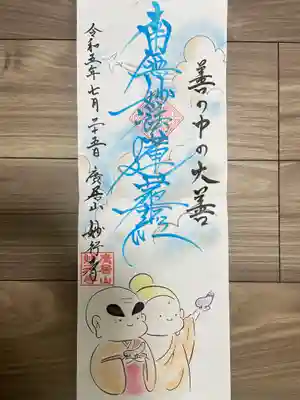 善の中の大善
南無妙法蓮華経
令和五年七月二十五日 廣居山 妙行寺